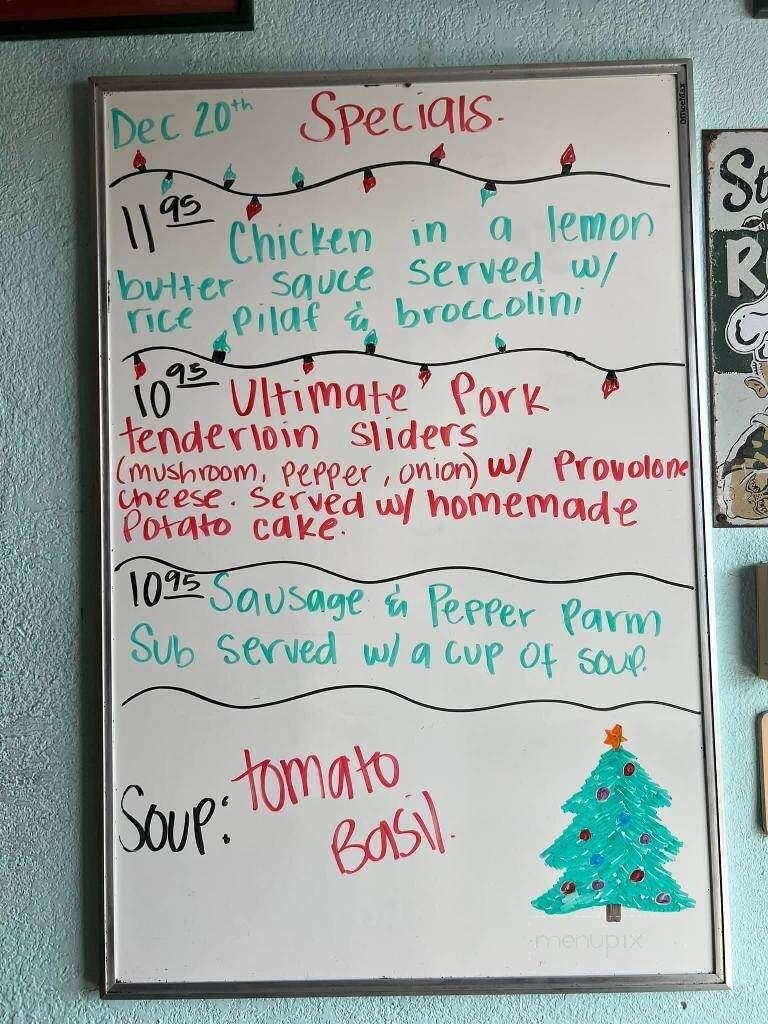 Dec 20th Specials.
11 95 Chicken in a lemon
butter sauce served w/
rice pilaf & broccolini
10 95 Ultimate Pork
tenderloin sliders
(mushroom, pepper, onion) w/ Provolone
cheese. Served w/ homemade
Potato cake.
10 95 Sausage & Pepper Parm
Sub served w/ a cup of soup.
Soup: tomato
Basil.
menupix
OfficeMax
St
R